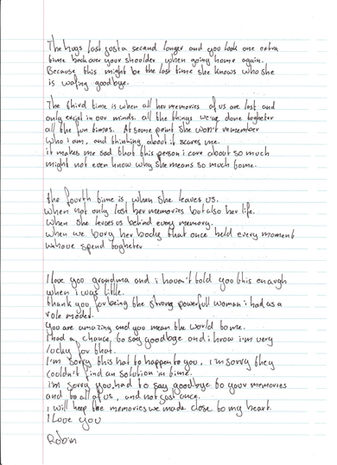 The hugs last just a second longer and you look one extra
time back over your shoulder when going home again.
Because this might be the last time she knows who she
is waving goodbye.
The third time is when all her memories of us are lost and
only exist in our minds. all the things we've done togheter
all the fun times. At some point she won't remember
who i am, and thinking about it scares me.
it makes me sad that this person i care about so much
might not even know why she means so much to me.
the fourth time is, when she leaves us.
when not only lost her memories but also her life.
when she leaves us behind every memory.
when we bury her body that once held every moment
we have spend togheter
I love you grandma and i haven't told you this enough
when i was little.
thank you for being the strong powerfull woman i had as a
role model.
You are amazing and you mean the world to me.
I had a chance, to say goodbye and i know i'm very
lucky for that.
I'm sorry this had to happen to you, i'm sorry they
couldn't find an solution in time.
i'm sorry you had to say goodbye to your memories
and to all of us, and not just once.
i will keep the memories we made close to my heart.
I Love You
Robin